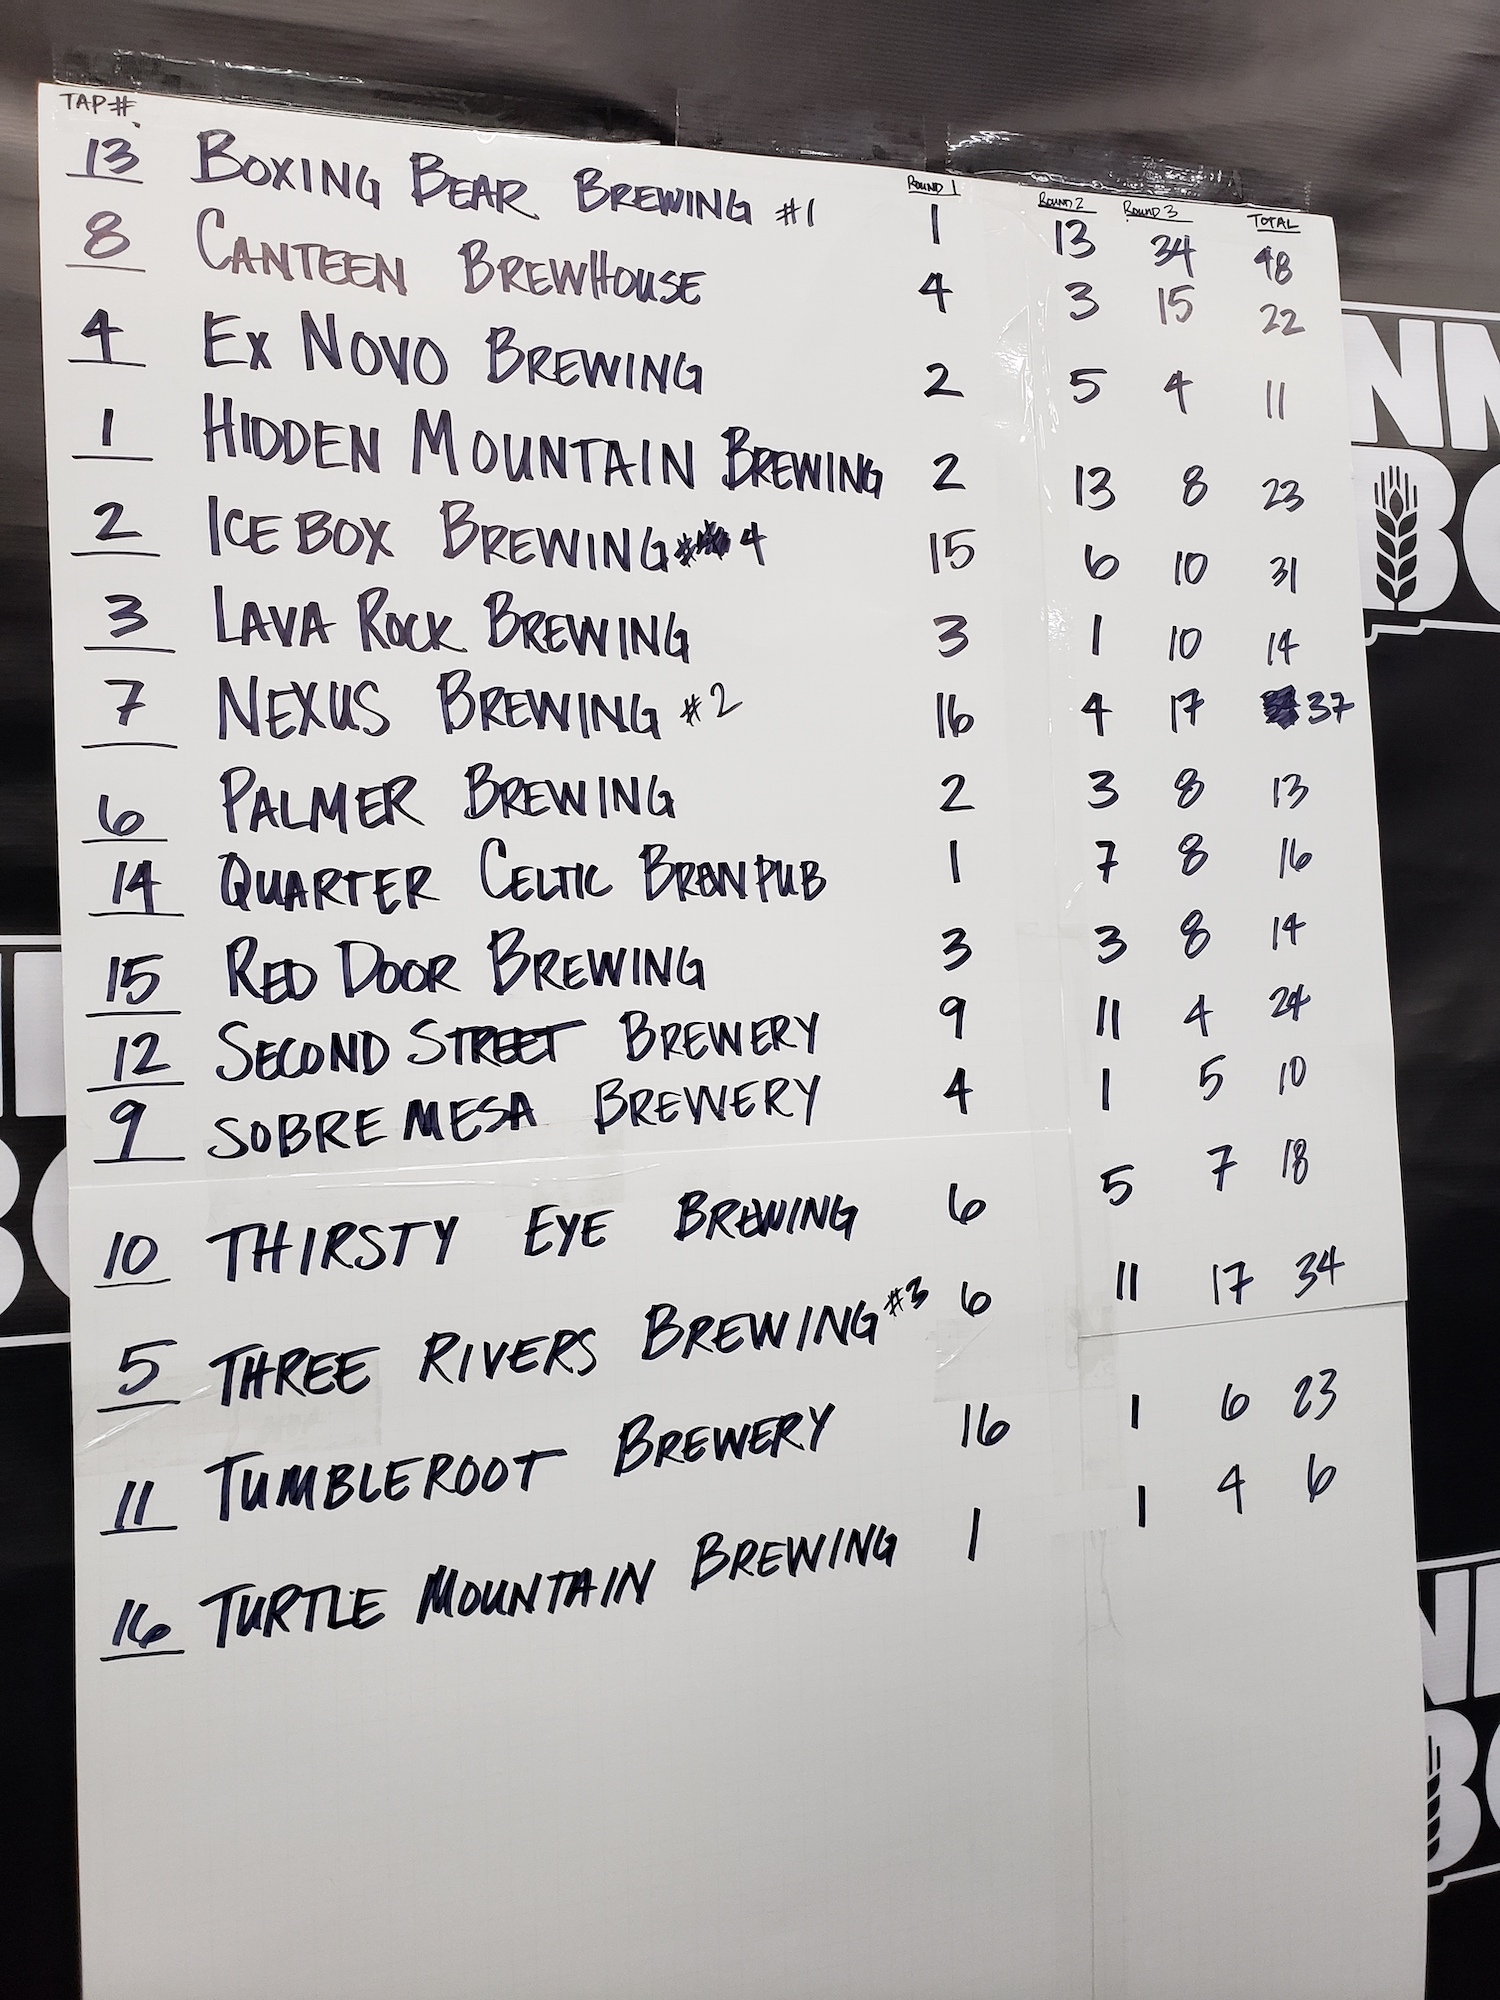 TAP#
ROUND 1 ROUND 2 ROUND 3 TOTAL
13 BOXING BEAR BREWING #1 1 13 34 48
8 CANTEEN BREWHOUSE 4 3 15 22
4 EX NOVO BREWING 2 5 4 11
1 HIDDEN MOUNTAIN BREWING 2 13 8 23
2 ICE BOX BREWING # 4 15 6 10 31
3 LAVA ROCK BREWING 3 1 10 14
7 NEXUS BREWING #2 16 4 17 37
6 PALMER BREWING 2 3 8 13
14 QUARTER CELTIC BREWPUB 1 7 8 16
15 RED DOOR BREWING 3 3 8 14
12 SECOND STREET BREWERY 9 11 4 24
9 SOBREMESA BREWERY 4 1 5 10
10 THIRSTY EYE BREWING 6 5 7 18
5 THREE RIVERS BREWING #3 6 11 17 34
11 TUMBLEROOT BREWERY 16 1 6 23
16 TURTLE MOUNTAIN BREWING 1 1 4 6